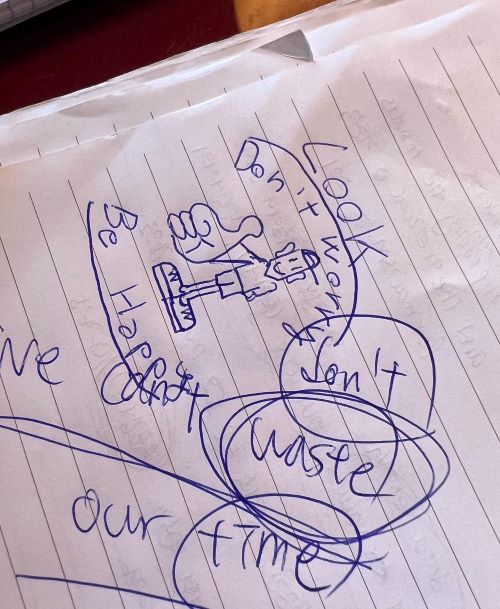 Look
Don't worry
Be Happy
don't
waste
our time